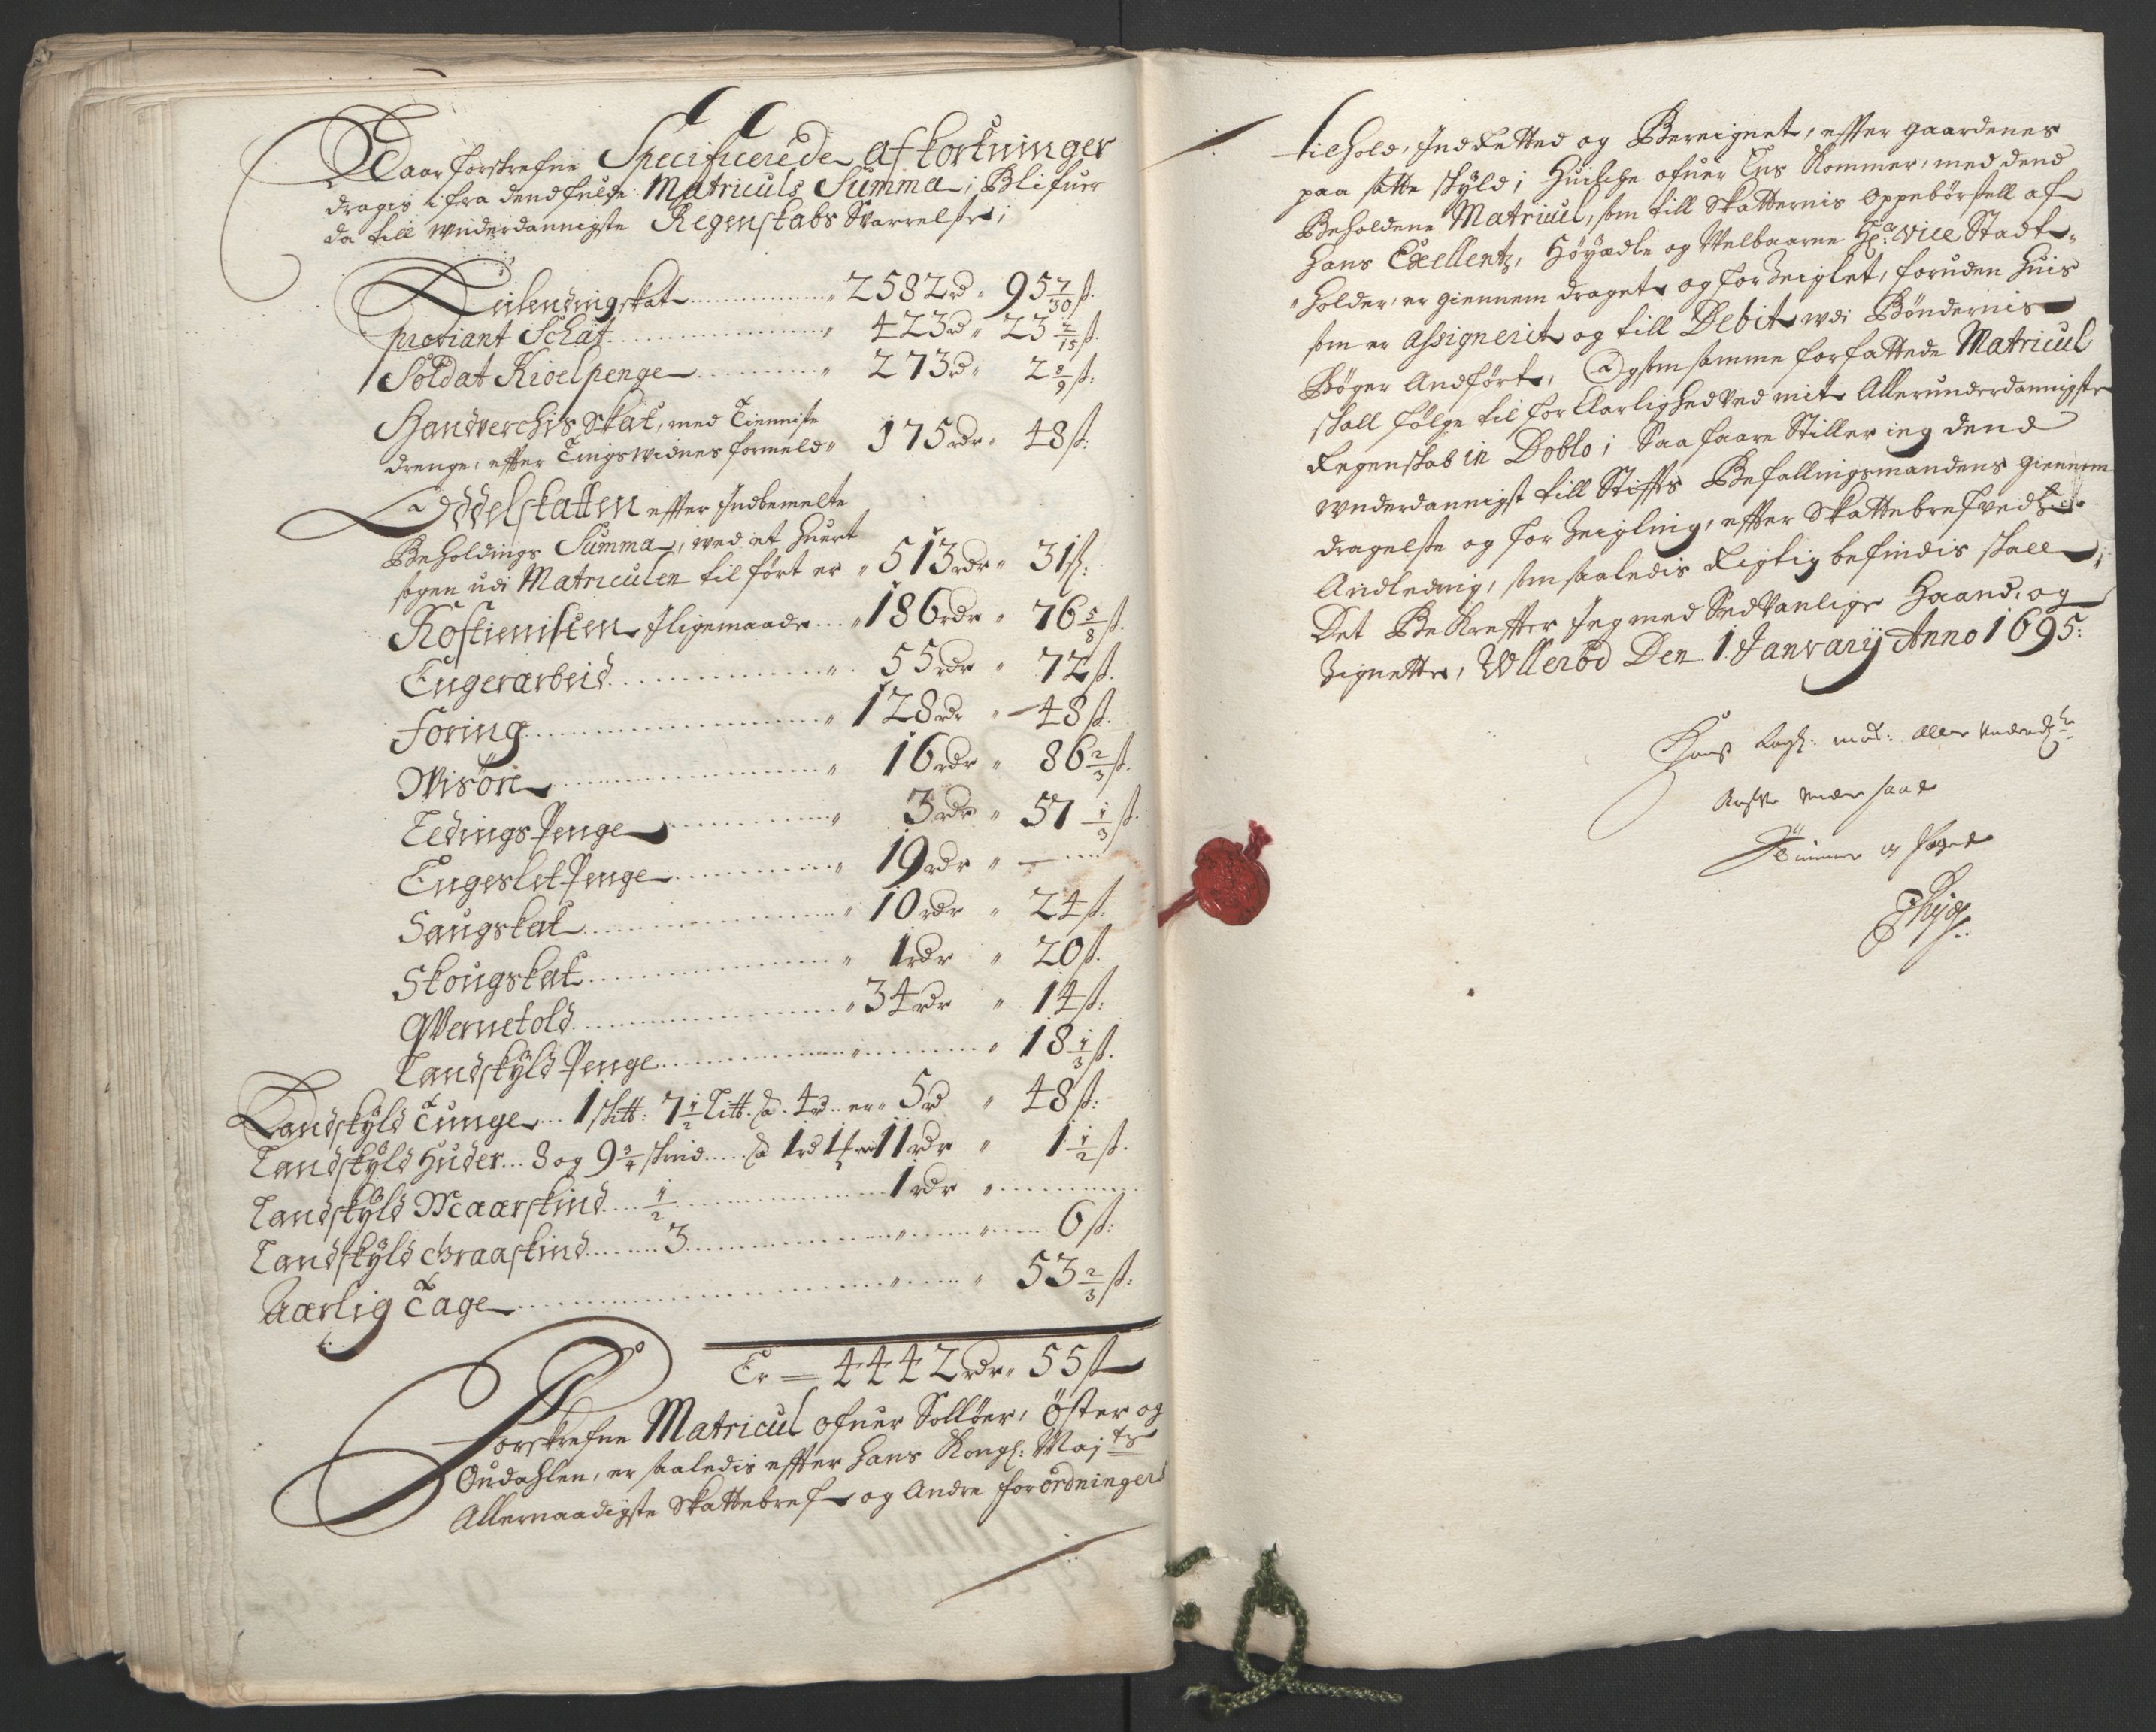 Naar forskrefne Specificerede afkortninger
dragis ifra dend fulde Matriculs Summa; Blifuer
da till underdannigste Regenskabs Svarrelse;
Leilendingskat " 2582 rd " 95 7/30 s.
proviant Schat " 423 rd " 23 2/15 s.
Soldat Kioelpenge " 273 rd " 2 8/9 s:
Handverchis Skat, med Tienniste
drenge, efter Tingswidnes formeld " 175 rdr " 48 s:
Oddelskatten efter Indbemelte
Beholdings Summa, ved et huert
sogen udi Matriculen tilført er " 513 rdr " 31 s:
Rostienisten I ligemaade " 186 rdr " 76 5/8 s.
Engerarbeid " 55 rdr " 72 s.
Foring " 128 rdr " 48 s.
Wisöre " 16 rdr " 86 2/3 s.
Ledings Penge " 3 rdr " 57 1/3 s.
Engeslet Penge " 19 rdr "
Saugskat " 10 rdr " 24 s.
Skougskat " 1 rdr " 20 s.
QWernetold " 34 rdr " 14 s:
Landskÿld Penge " " 18 1/3 s.
Landskÿld Tunge 1 skitt: 7 1/2 Litt. a 4 rd er " 5 rd " 48 s:
Landskÿld Huder 8 og 9 3/4 skind a 1 rd 11 rdr " 1 1/2 s.
Landskÿld Maarskind 1/2 1 rdr "
Landskÿld Graaskind 3 " " 6 s:
Aarlig Tage " " 53 2/3 s:
Er = 4442 rdr " 55 s
Forskrefne Matricul ofuer Sollöer, öster og
Oudahlen, er saaledis efter Hans Kongl: Maj ts
Allernaadigste Skattebref og Andre forordningers
tilhold, Indretted og Bereignet, efter gaardenes
paa satte skÿld; Huilche ofuer Ens Kommer, med dend
Beholdene Matricul, som till Skatternis oppebörsell af
Hans Exellentz, Höÿædle og Velbaarne Hr: Vice Stadt-
"holder, er giennem draget og forzeiglet, foruden huis
som er Assignerit og till Debit udi Böndernis
Böger Andfört, Og som samme forfattede Matricul
skall fölge til forklarlighed ved mit Allerunderdannigste
Regenskab in Doblo; Saa faare Stiller ieg dend
underdannigst till Stiffts Befallingsmandens giennem
dragelse og forzeigling, efter Skattebrefved
Andledning, som saaledis Rigtig befindis skall;
Det Bekrefter Ieg med Sedvanlige Haand, og
Zignette, Wllerød Den 1. Januarij Anno 1695:
Hans Kongl: maÿ: aller